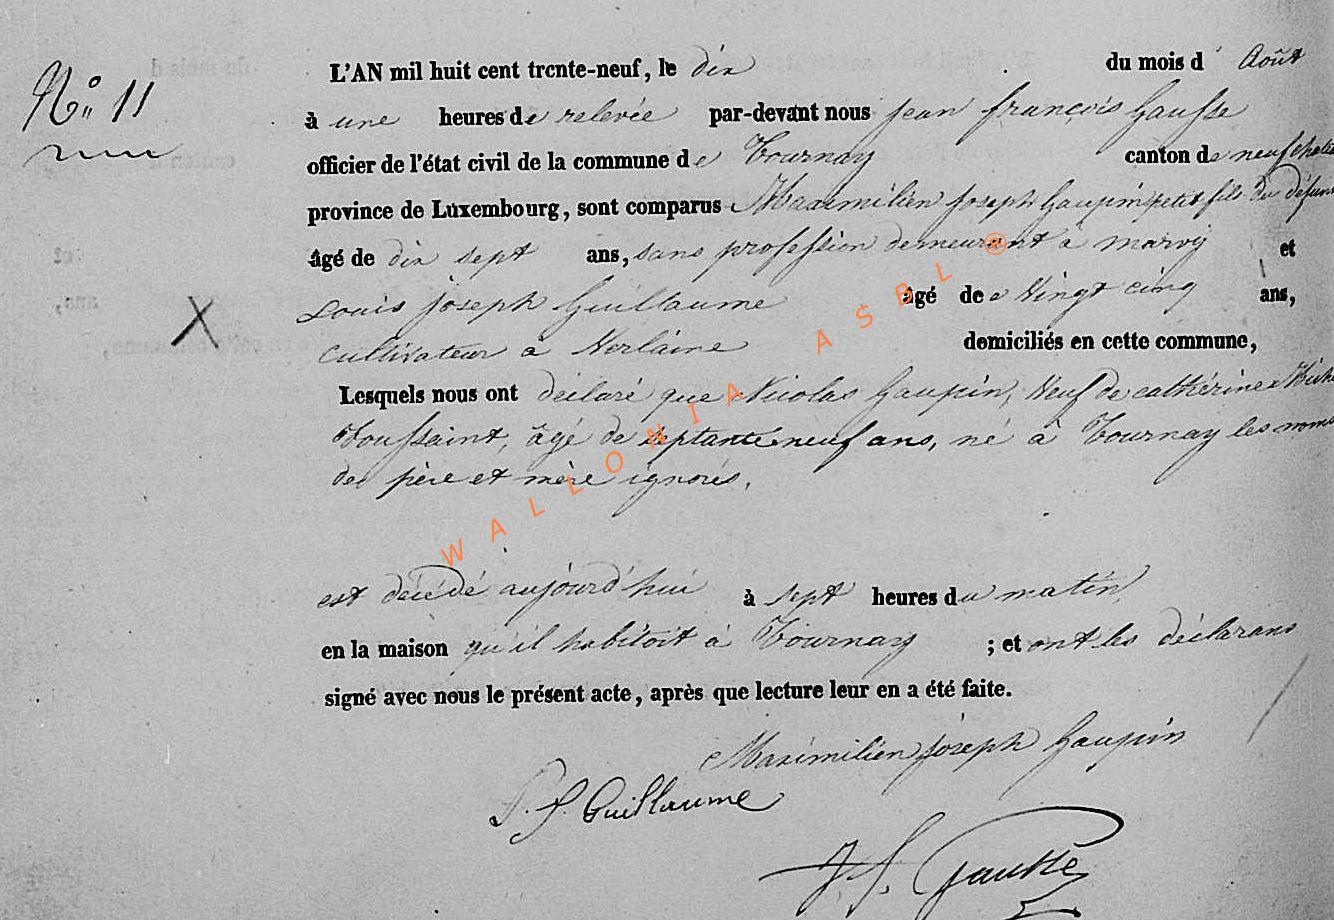 N° 11
L'AN mil huit cent trente-neuf, le dix du mois d' Août
à une heures de relevée par-devant nous jean françois Gausse
officier de l'état civil de la commune de Tournay canton de neufchatea
province de Luxembourg, sont comparus Maximilien Joseph Gaupin petit fils du défunt
âgé de dix sept ans, sans profession demeurant à marvij et
Louis joseph Guillaume âgé de Vingt cinq ans,
cultivateur à Verlaine domiciliés en cette commune,
Lesquels nous ont déclaré que Nicolas Gaupin, Veuf de cathérine
Toussaint, âgé de septante neuf ans, né à Tournay les noms
de père et mère ignorés.
est décédé aujourd'hui à sept heures du matin
en la maison qu'il habitoit à Tournay ; et ont les déclarans
signé avec nous le présent acte, après que lecture leur en a été faite.
Maximilien joseph Gaupin
L. J. Guillaume
J f. Gausse
WALLONIA ASBL ®